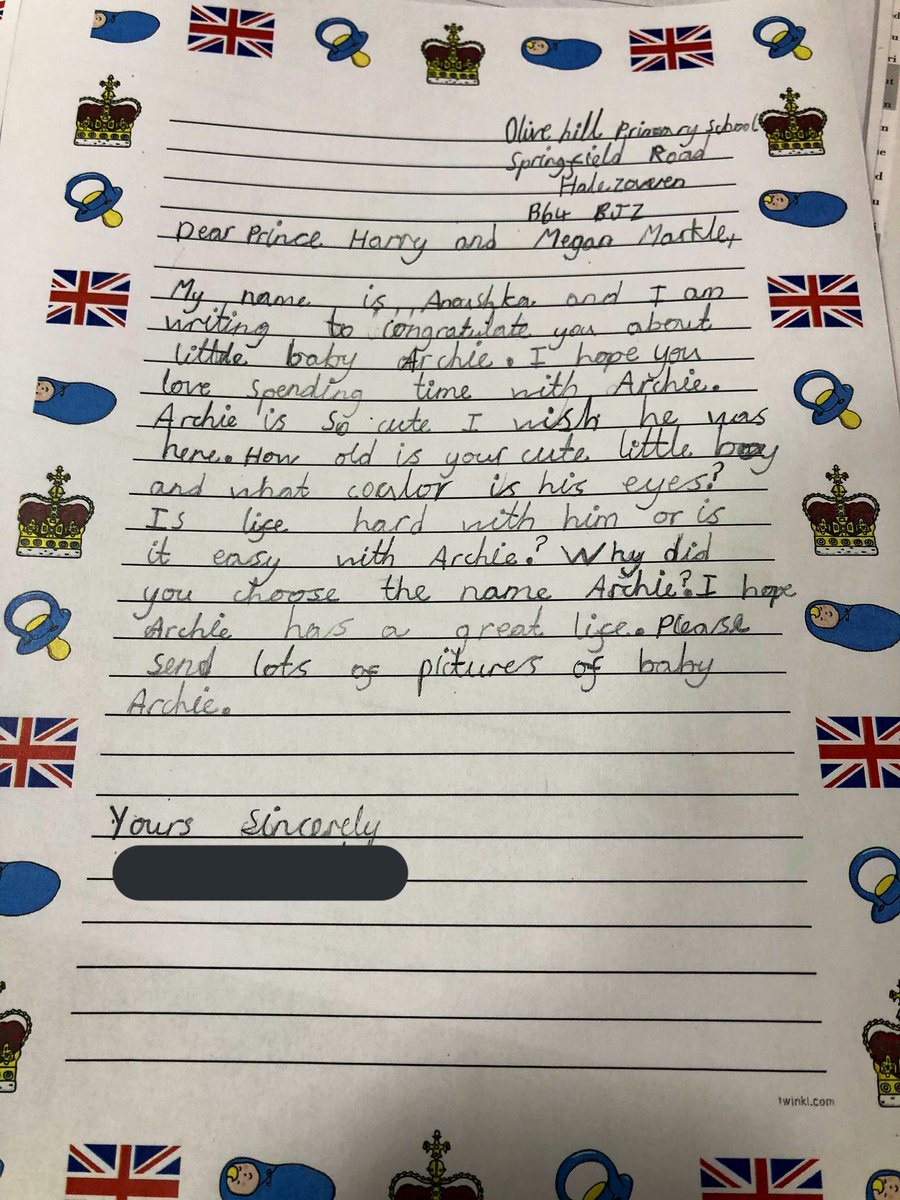 Olive hill Primary School
Springfield Road
Halezoween
B64 BJZ
Dear Prince Harry and Megan Markle,
My name is, Anoushka and I am
writing to congratulate you about
little baby Archie. I hope you
love spending time with Archie.
Archie is so cute I wish he was
here. How old is your cute little boy
and what coulor is his eyes?
Is life hard with him or is
it easy with Archie? Why did
you choose the name Archie? I hope
Archie has a great life. Please
send lots of pictures of baby
Archie.
Yours Sincerely
twinkl.com